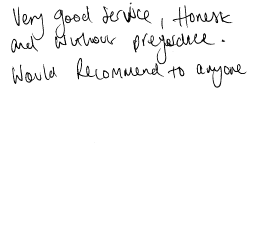 Very good service, Honest
and without prejudice.
Would Recommend to anyone